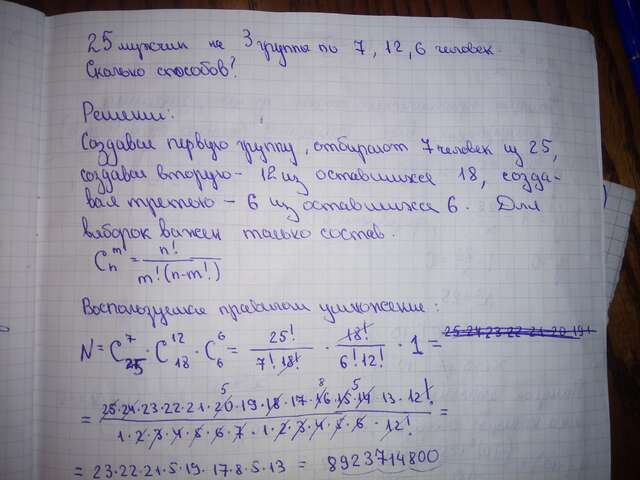 25 мужчин на 3 группы по 7, 12, 6 человек.
Сколько способов?
Решение:
Создавая первую группу, отбирают 7 человек из 25,
создавая вторую - 12 из оставшихся 18, созда-
вая третью - 6 из оставшихся 6. Для
выборок важен только состав.
C_n^m = n! / m!(n-m)!
Воспользуемся правилом умножения:
N = C_25^7 · C_18^12 · C_6^6 = 25! / 7! 18! · 18! / 6! 12! · 1 =
= 25·24·23·22·21·20·19·18·17·16·15·14·13·12! / 1·2·3·4·5·6·7·1·2·3·4·5·6·12! =
= 23·22·21·5·19·17·8·5·13 = 8923714800